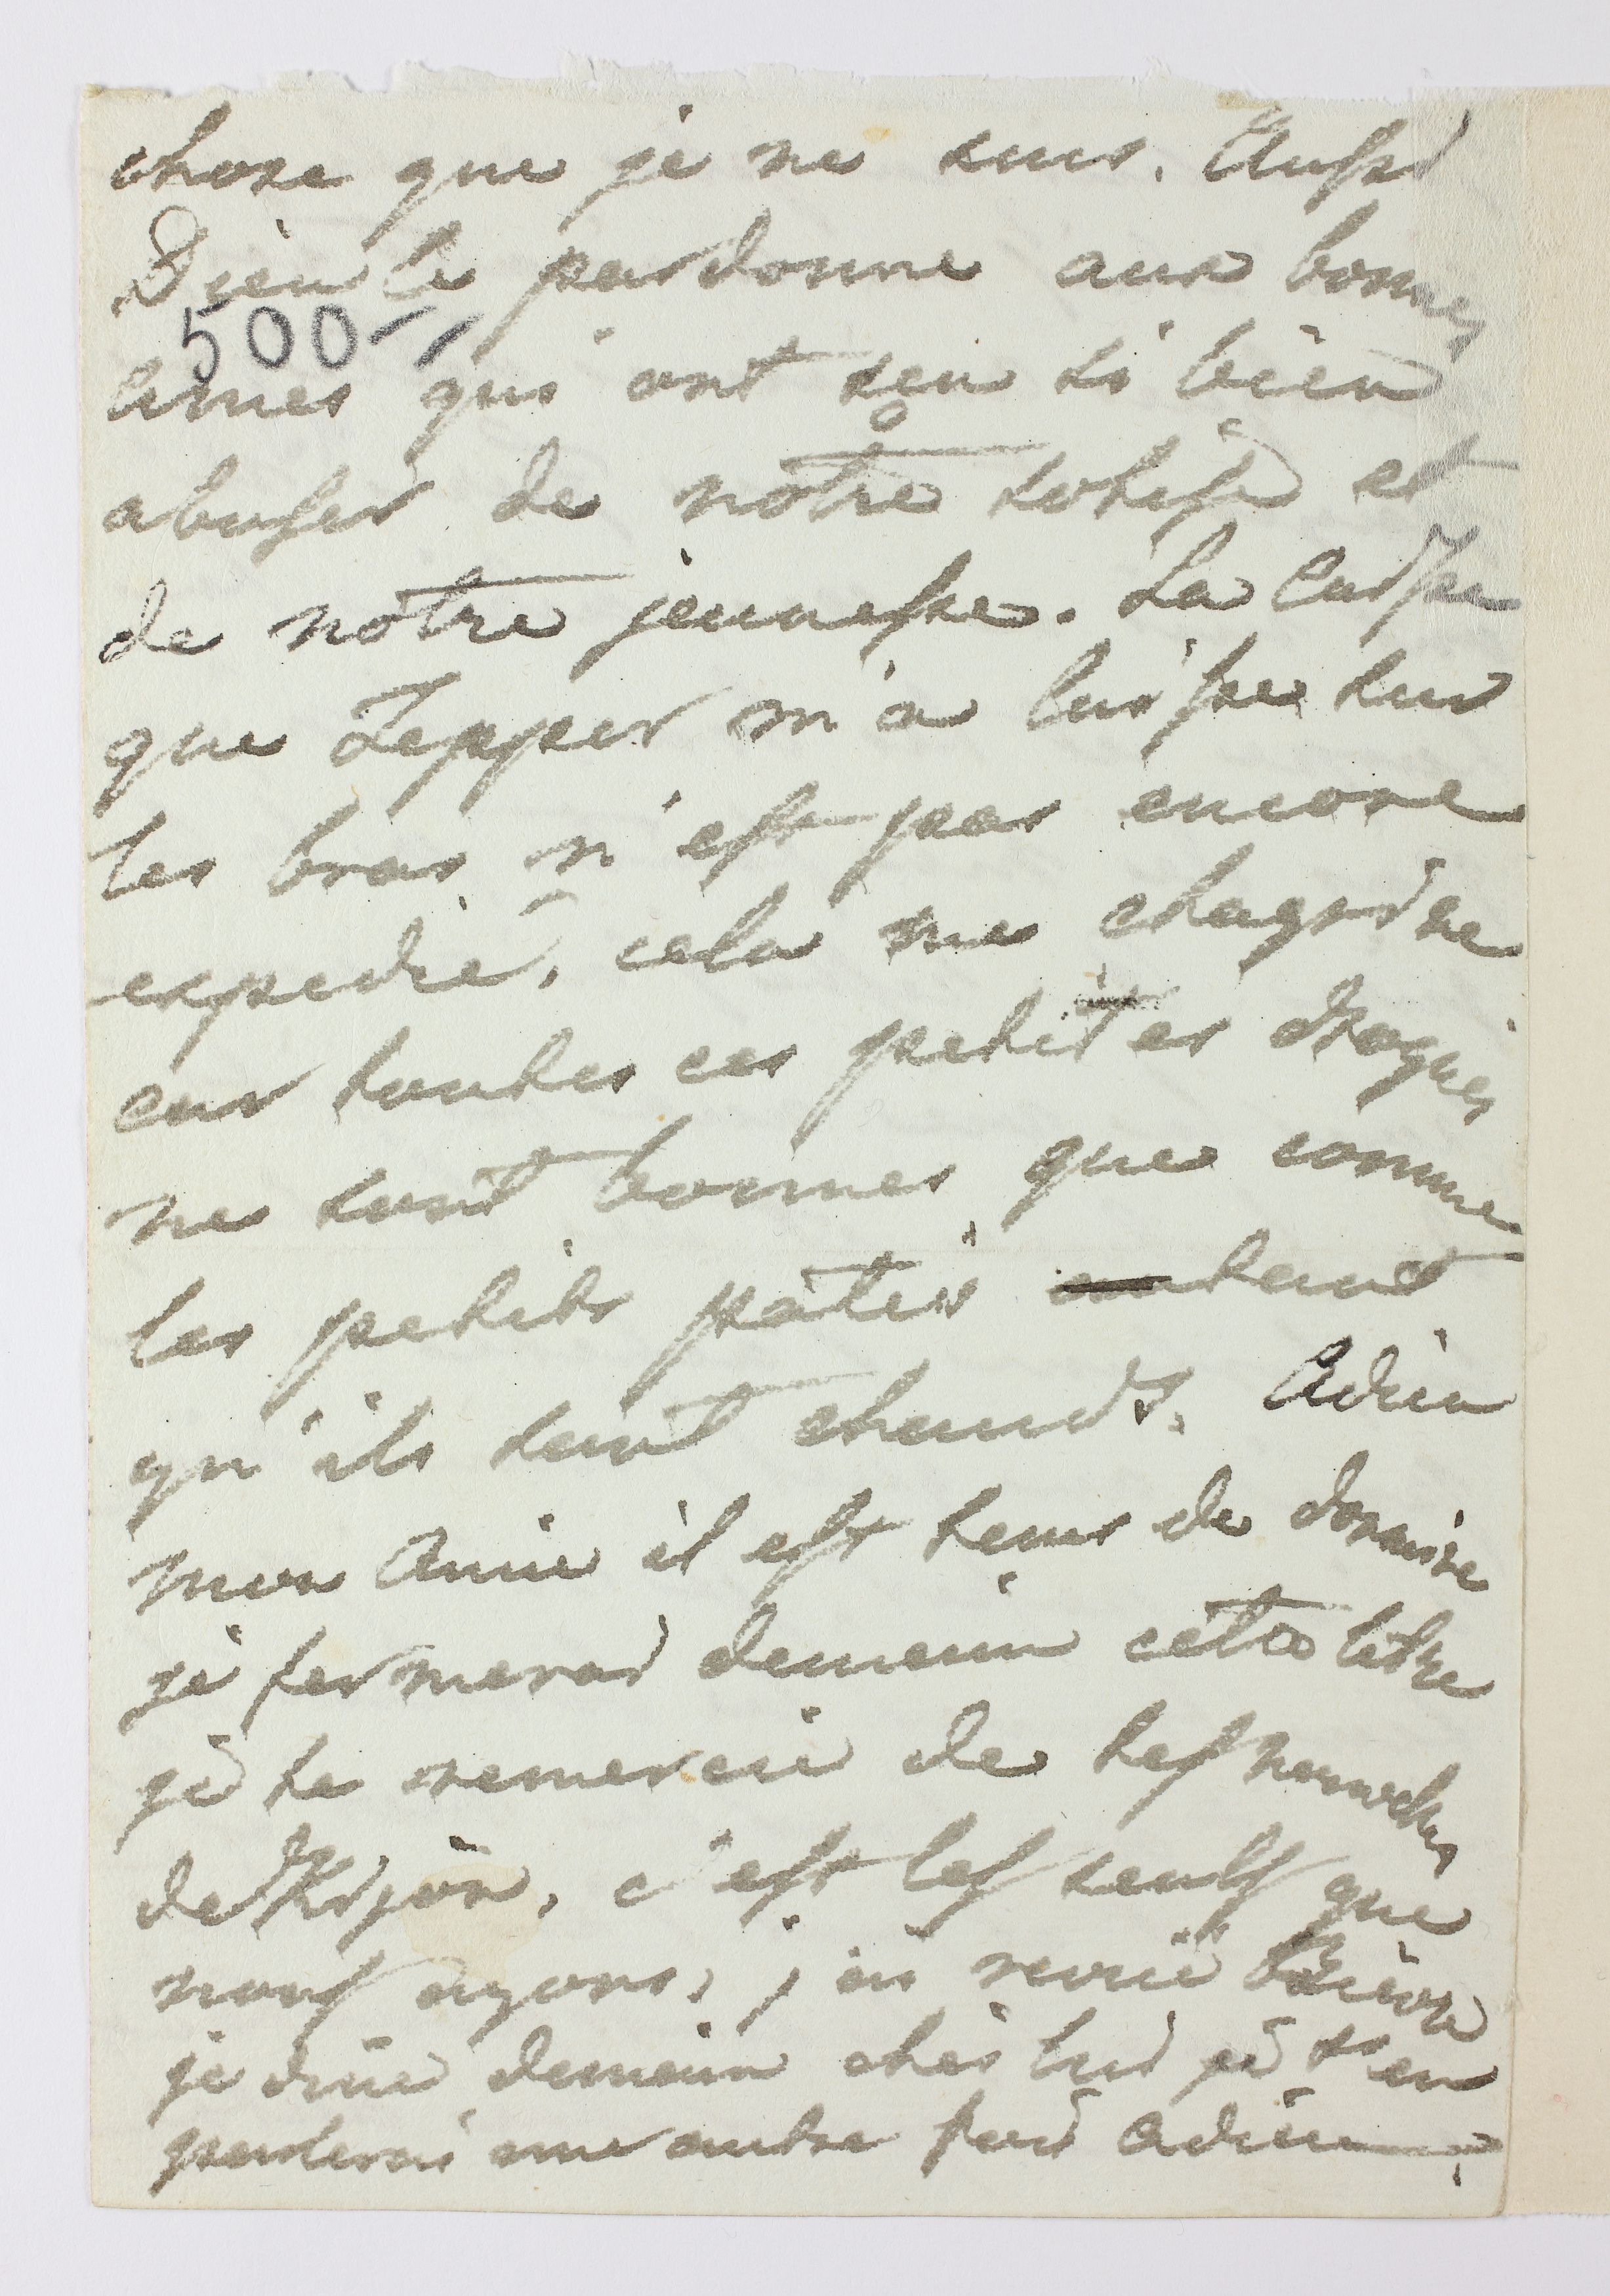 chose que je ne suis. Aussi
Dieu le pardonne aux bonnes
ames qui ont seu si bien
abuser de notre sotise et
de notre jeunesse. La
que m'a laissee sur
les bras n'est pas encore
expedié, cela me chagrine
car toutes ces petites drogues
ne sont bonnes que comme
les petits patés tant
qu'ils sont chauds. Adieu
mon Amie il est tems de dormire
je fermerai demain cette lettre
je te remercie de tes
de c'est les seuls que
nous ayons, j'ai revue
je dine demain ches lui je t'en
parlerai une autre fois adieu
500-